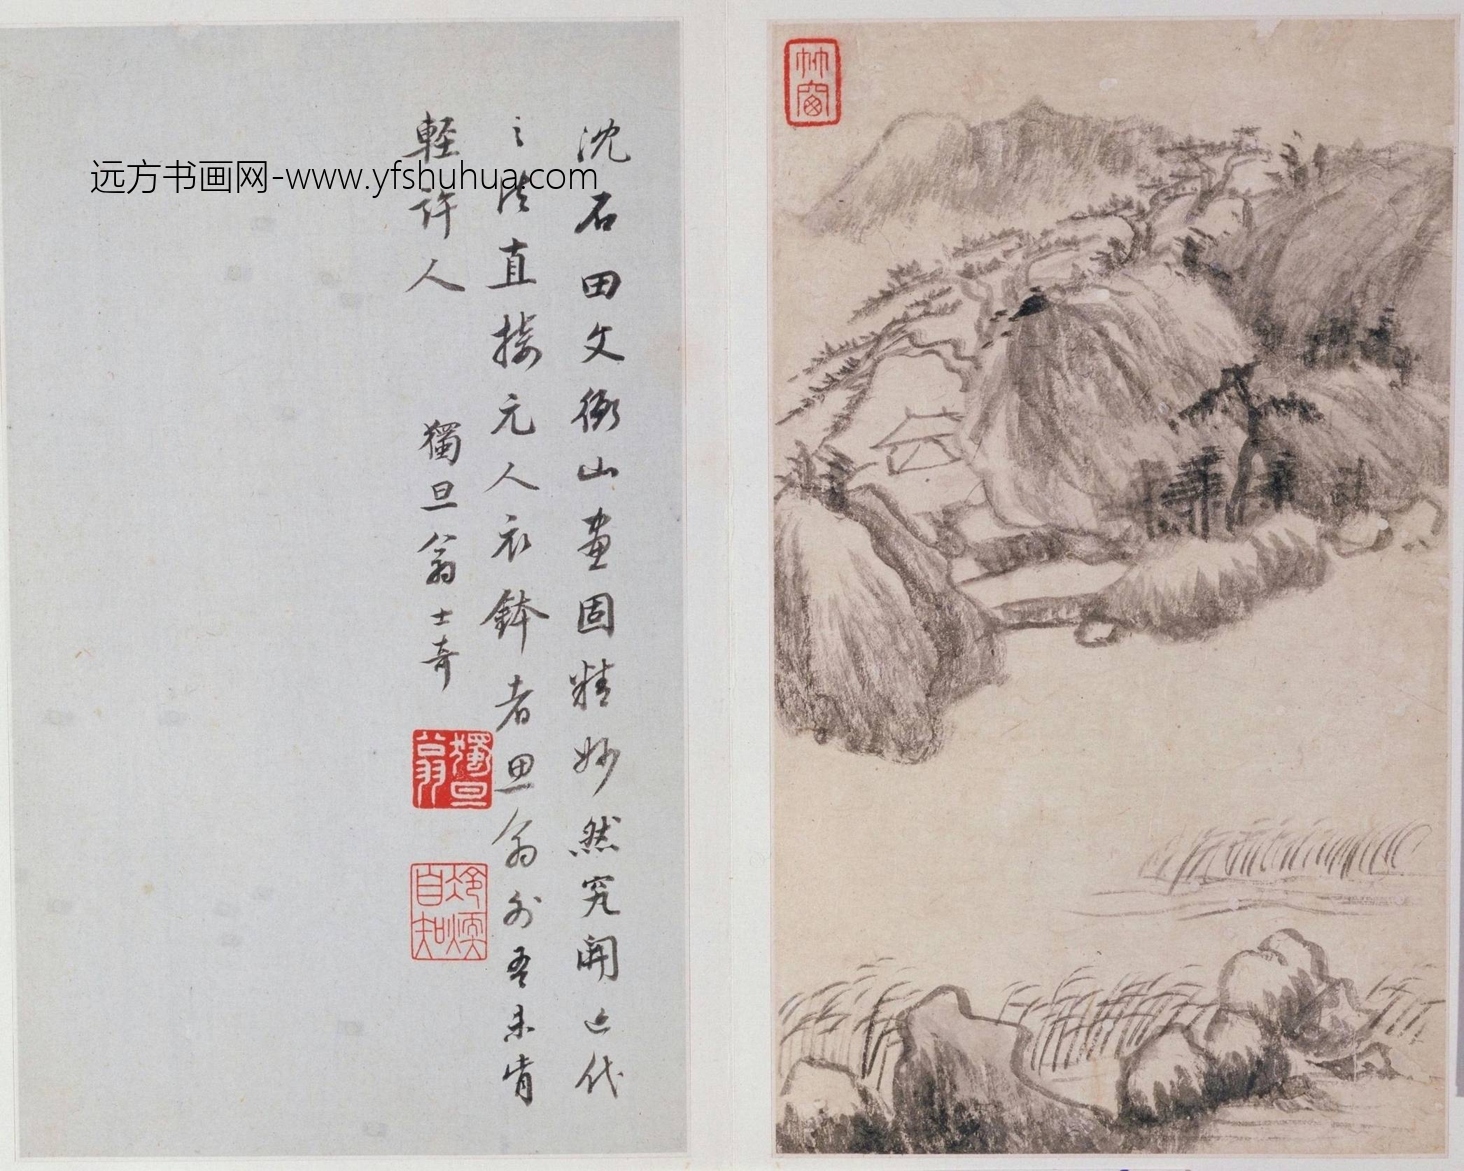 沈石田文衡山畫固精妙然究開近代
之法直接元人衣鉢者思翁外吾未肯
輕許人
獨旦翁士奇
獨旦翁
自知
竹窗
远方书画网-www.yfshuhua.com